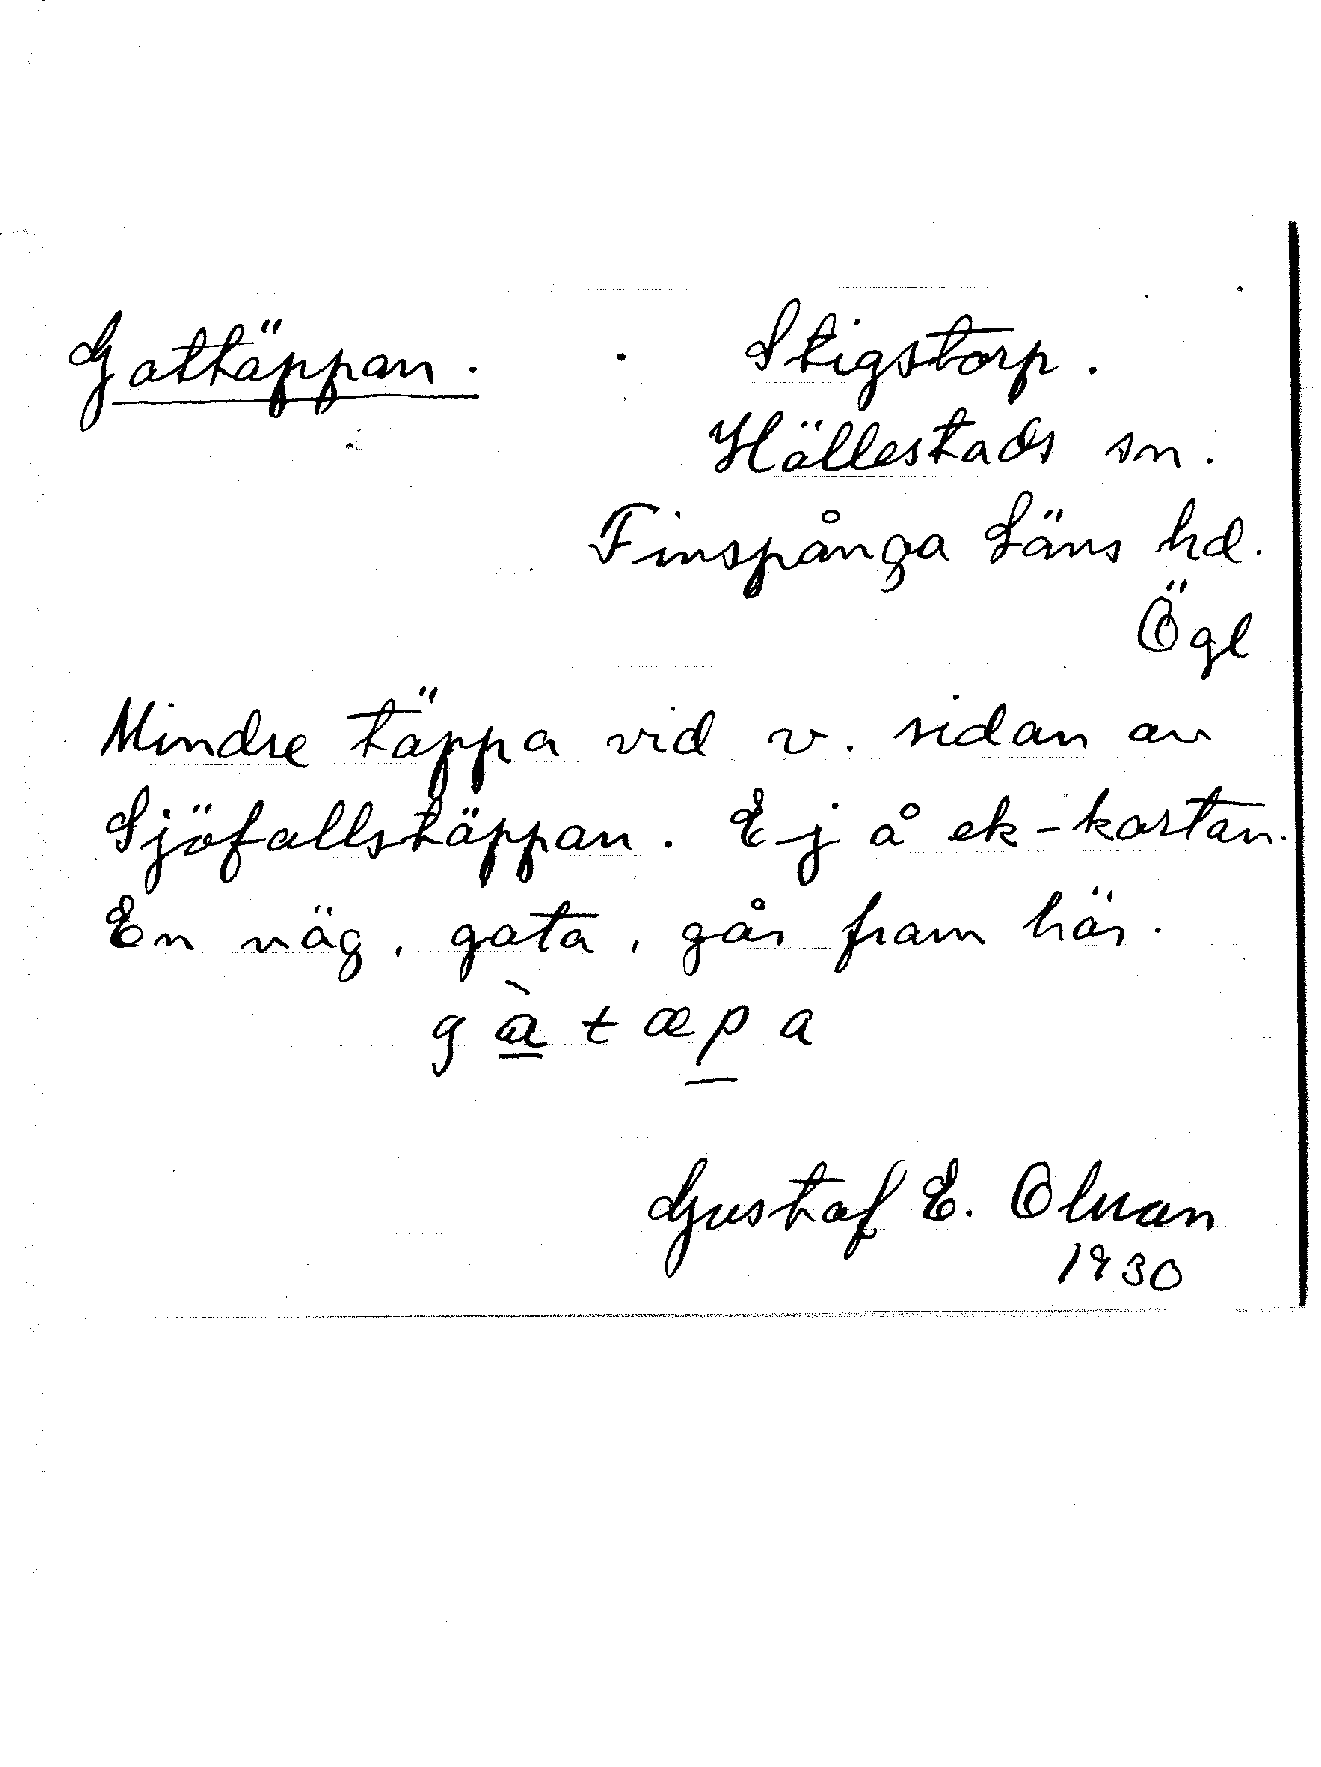 Gattäppan. Stigstorp.
Hällestads sn.
Finspånga Läns hd.
Ögl
Mindre täppa vid v. sidan av
Sjöfallstäppan. Ej å ek-kartan.
En väg, gata, går fram här.
gàtæpa
Gustaf E. Olsson
1930